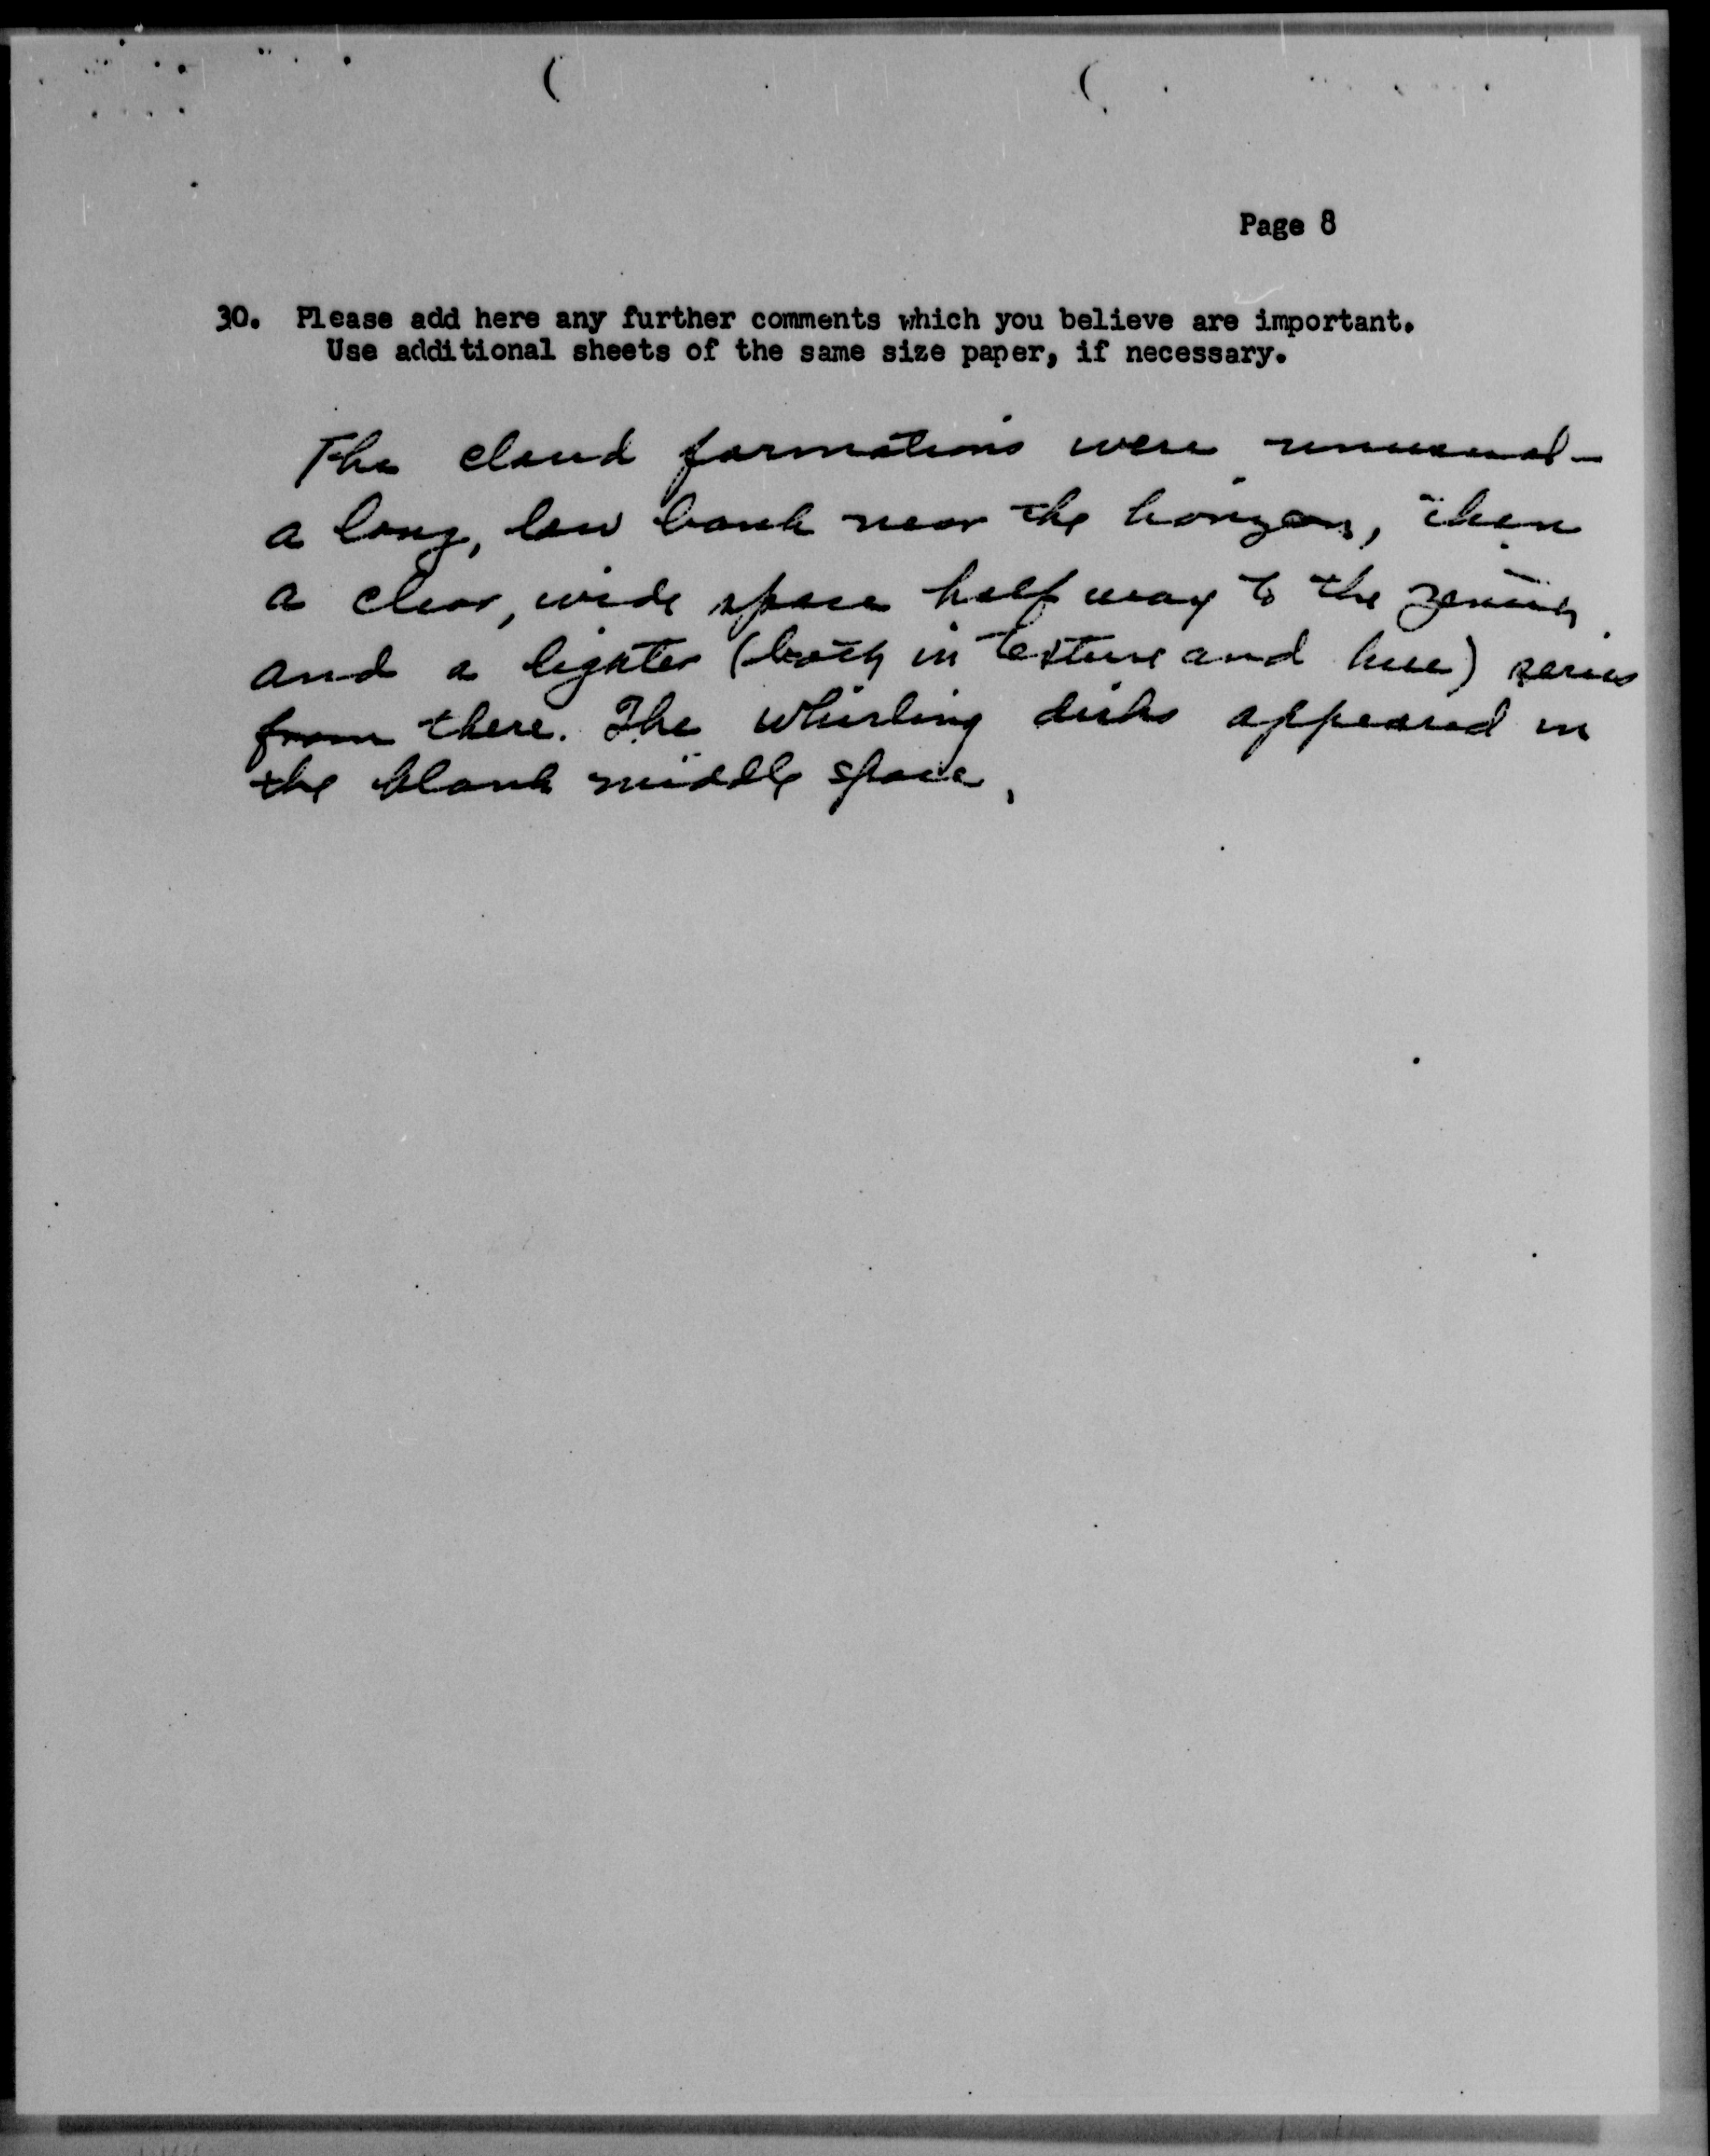 Page 8
30. Please add here any further comments which you believe are important.
Use additional sheets of the same size paper, if necessary.
The cloud formations were unusual -
a long, low bank near the horizon, then
a clear, wide space half way to the zenith
and a lighter (both in texture and hue) series
from there. The whirling disks appeared in
the blank middle space.